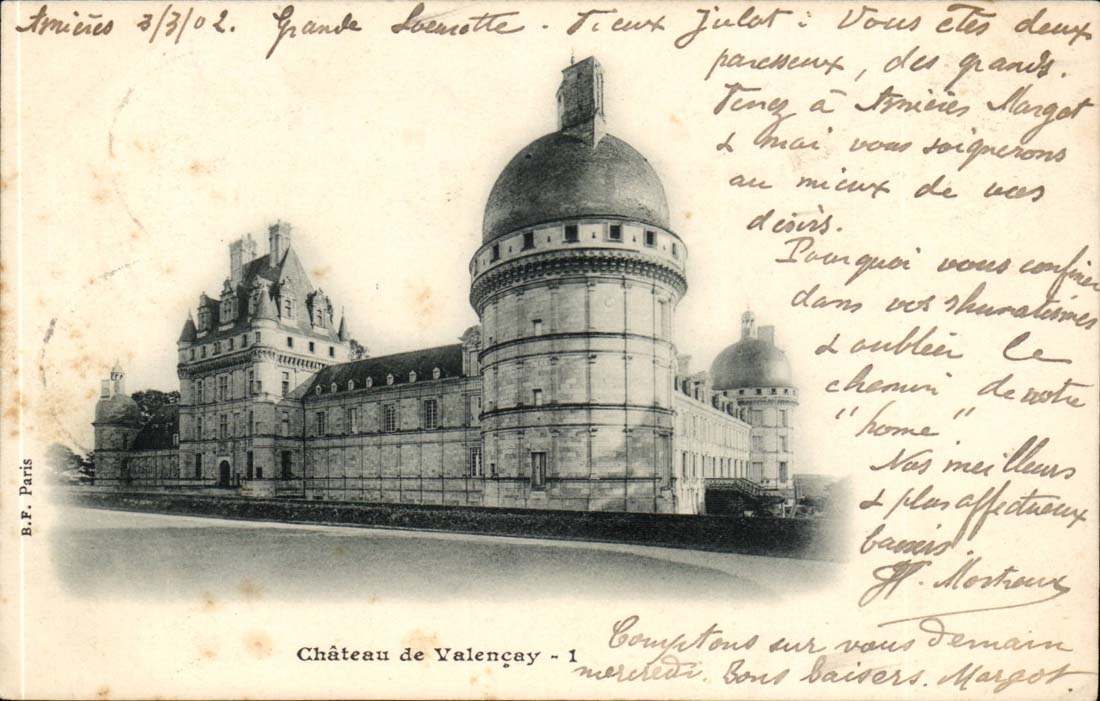 Asnières 3/3/02. Grande - Vieux Julot : Vous êtes deux
paresseux, des grands.
Venez à Asnières Margot
& moi vous soignerons
au mieux de vos
désirs.
Pourquoi vous confiner
dans vos rhumatismes
& oublier le
chemin de notre
"home"
Nos meilleurs
& plus affectueux
baisers.
Comptons sur vous demain
mercredi. Bons baisers. Margot.
Château de Valençay - 1
B.F. Paris